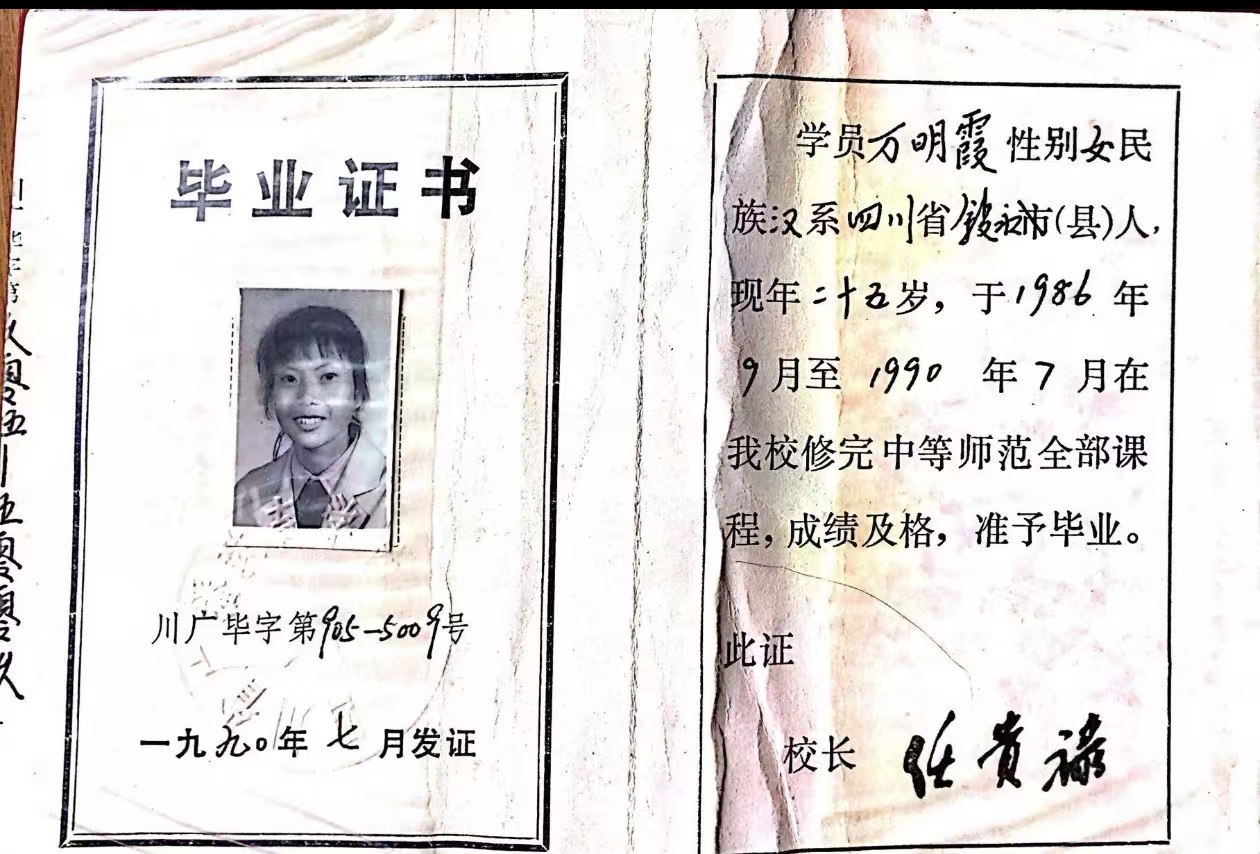 毕业证书
川广毕字第905-5009号
一九九〇年七月发证
学员万明霞性别女民
族汉系四川省叙永市(县)人,
现年二十五岁，于1986年
9月至1990年7月在
我校修完中等师范全部课
程，成绩及格，准予毕业。
此证
校长 任贵禄